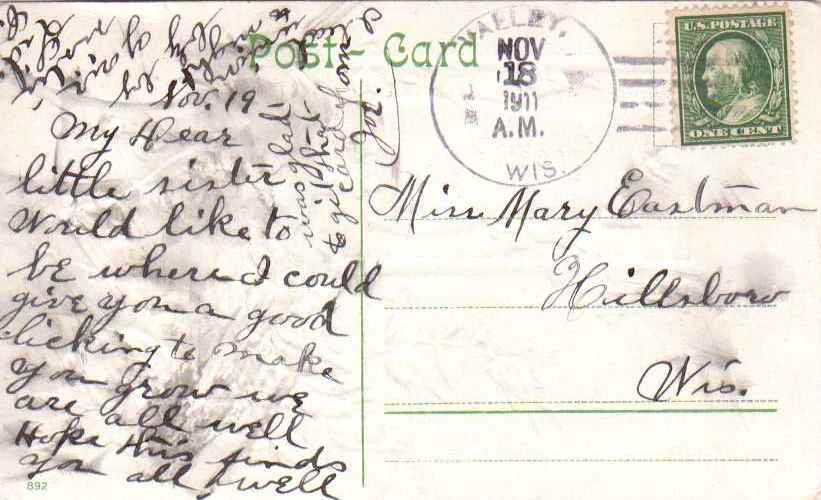 Post-Card
VALLEY,
NOV
18
1911
A.M.
WIS.
U.S. POSTAGE
ONE CENT
Nov. 19-
My Dear
little sister
Would like to
be where I could
give you a good
licking to make
you grow we
are all well
Hope this finds
you all well
was glad
to get that
card of
Miss Mary Eastman
Hillsboro
Wis.
892